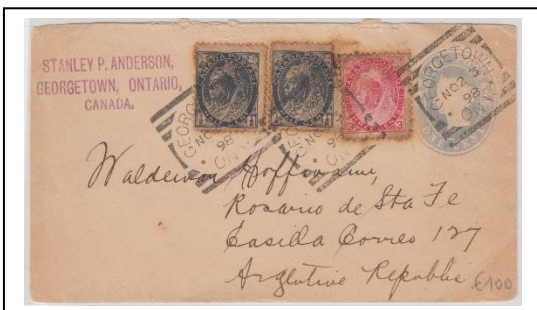 STANLEY P. ANDERSON,
GEORGETOWN, ONTARIO,
CANADA.
GEORGETOWN
NO 2
98
ONT.
3
Waldemar Hoffmann,
Rosario de Sta Fe
Casilla Correo 127
Argentine Republic
€100